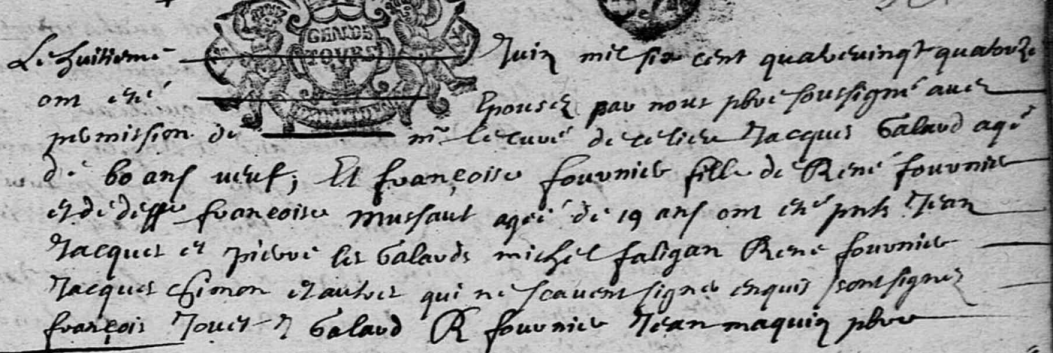 GEN.DE
TOURS
Le huitieme Juin mil six cent quatrevingt quatorze
ont eté Epousez par nous pbre soussigné avec
permission de mr le curé de ce lieu Jacques Galard agé
de 60 ans veuf, Et françoise fournier fille de René fournier
et de deffe françoise Mussaut ageé de 19 ans ont eté pnts Jean
Jacques et pierre les Galards michel faligan René fournier
Jacques Chimon et autres qui ne scavent signer enquis sont signez
françois Jouet J Galard R fournier Jean maquin pbre